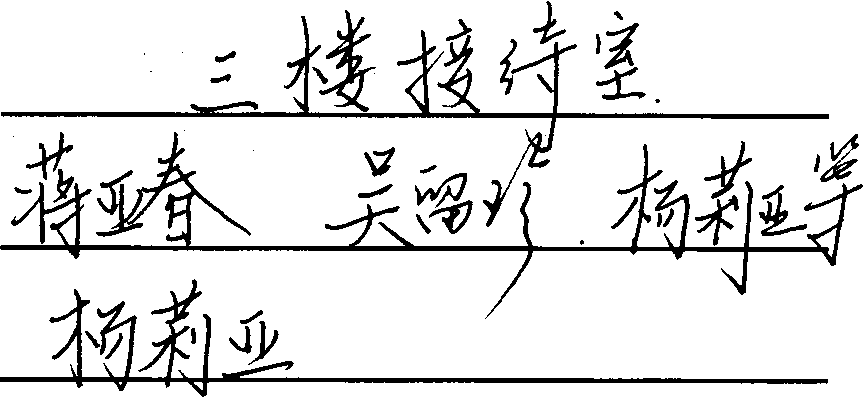 三楼接待室.
蒋亚春 吴留珍. 杨莉亚等
杨莉亚